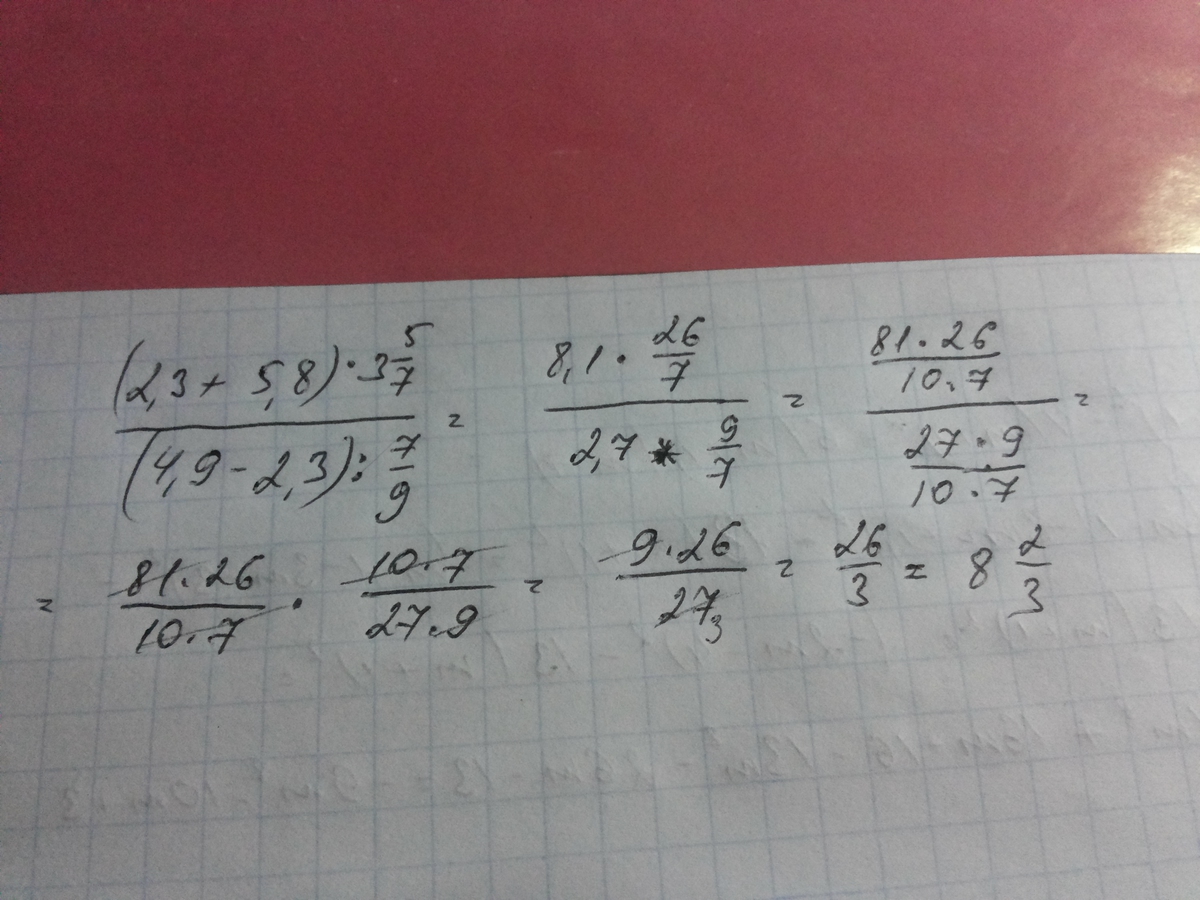 (2,3 + 5,8) · 3 5/7 / (4,9 - 2,3) : 7/9 = 8,1 · 26/7 / 2,7 * 9/7 = 81 · 26 / 10 · 7 / 27 · 9 / 10 · 7 =
= 81 · 26 / 10 · 7 · 10 · 7 / 27 · 9 = 9 · 26 / 27 3 = 26/3 = 8 2/3